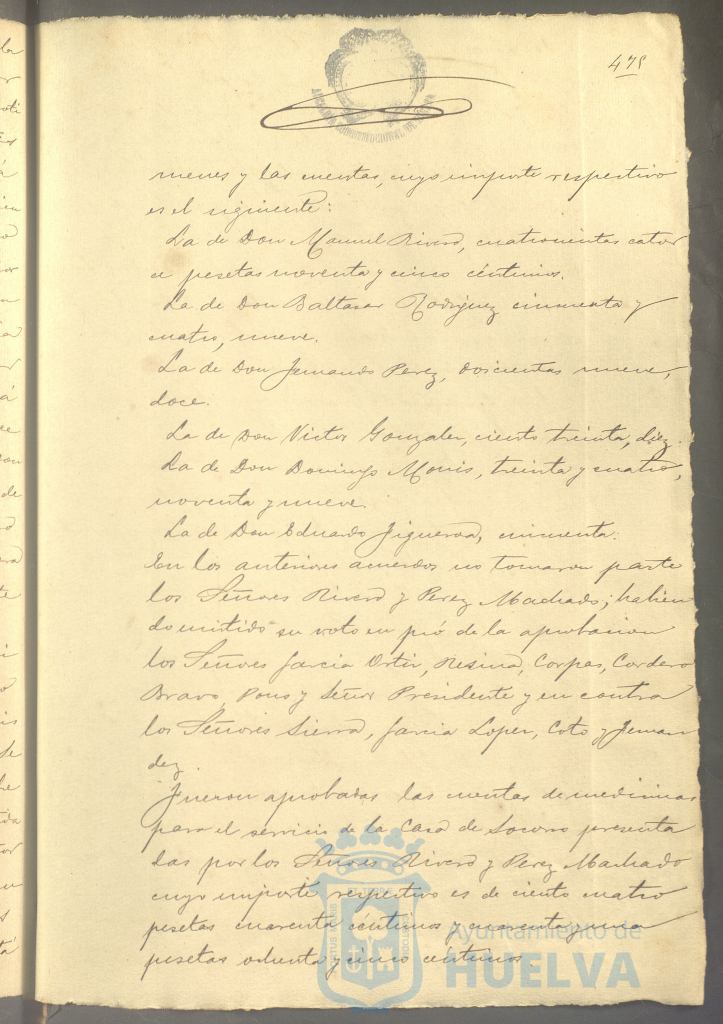 475
menes y las cuentas, cuyo importe respectivo
es el siguiente:
La de Don Manuel Rivero, cuatrocientas cator
ce pesetas noventa y cinco céntimos.
La de Don Baltasar Rodriguez cincuenta y
cuatro, nueve.
La de Don Fernando Perez, doscientas nueve,
doce.
La de Don Victor Gonzalez, ciento treinta, diez.
La de Don Domingo Monis, treinta y cuatro,
noventa y nueve.
La de Don Eduardo Figueroa, cincuenta.
En los anteriores acuerdos no tomaron parte
los Señores Rivero y Perez Machado; habien
do emitido su voto en pró de la aprobacion
los Señores Garcia Ortiz, Resina, Corpas, Cordero
Bravo, Pons y Señor Presidente y en contra
los Señores Sierra, Garcia Lopez, Coto y Fernan
dez.
Fueron aprobadas las cuentas de medicinas
para el servicio de la Casa de Socorro presenta
das por los Señores Rivero y Perez Machado
cuyo importe respectivo es de ciento cuatro
pesetas cuarenta céntimos y cuarenta y una
pesetas ochenta y cinco céntimos
Ayuntamiento de
HUELVA